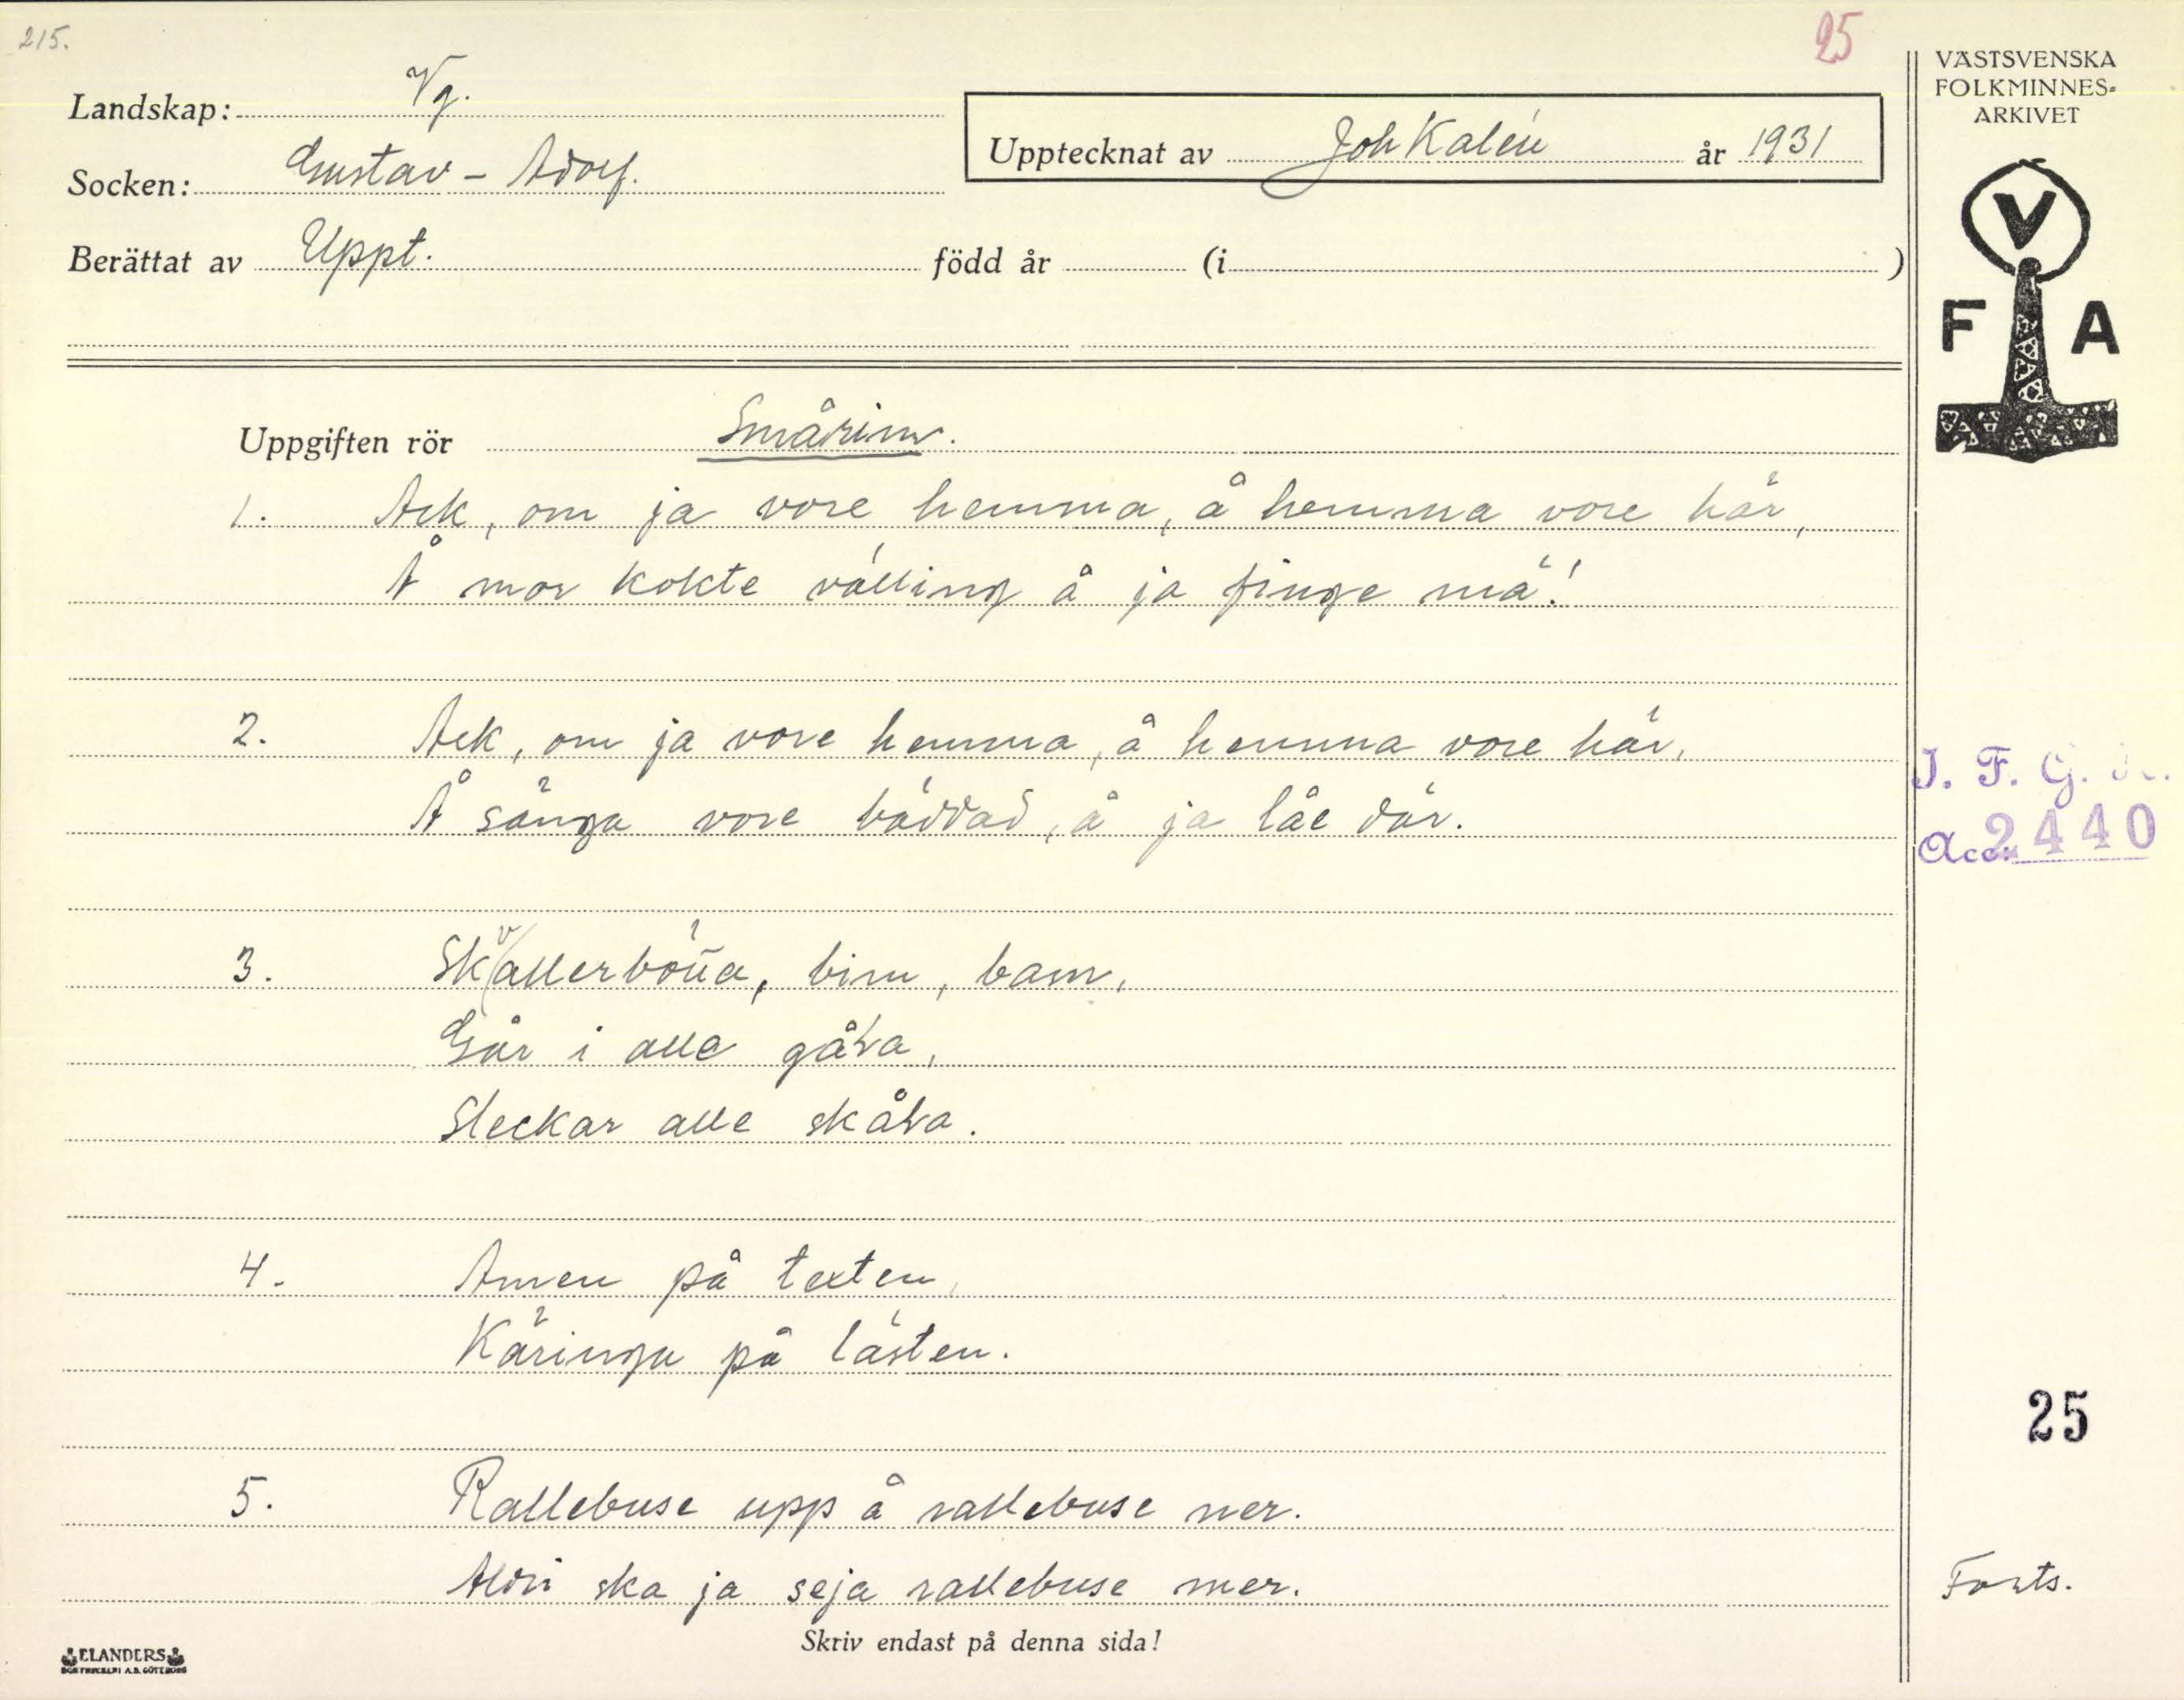 215.
25
Landskap: Vg.
Socken: Gustav - Adolf.
Upptecknat av Joh Kalén år 1931
Berättat av Uppt. född år (i )
VÄSTSVENSKA
FOLKMINNES-
ARKIVET
V
F A
Uppgiften rör Smårim.
1. Ack, om ja vore hemma, å hemma vore här,
Å mor kokte välling å ja finge mä!
2. Ack, om ja vore hemma, å hemma vore här,
Å sänga vore bäddad, å ja låe där.
I. F. G.
Acc. 2440
3. Skvallerbötta, bim, bam,
Går i alle gåra,
Sleckar alle skåra.
4. Amen på texten,
Käringa på lästen.
25
5. Rallebuse upp å rallebuse ner.
Aldri ska ja seja rallebuse mer.
Forts.
Skriv endast på denna sida!
ELANDERS
BOKTRYCKERI A.B. GÖTEBORG